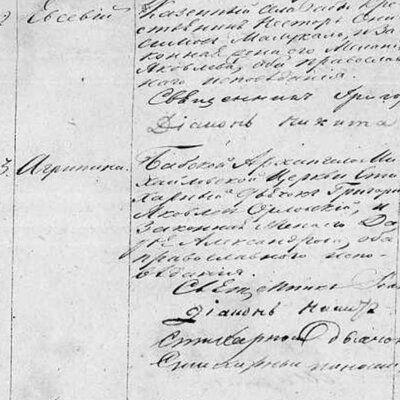 Евсевій
Казенной
ственникъ Несторъ
и за
конная жена его
Яковлева, оба православ
наго исповѣданія.
Священникъ Григор
Діаконъ Никита
3. Агрипина.
Бабской Архангело Ми
хаиловской Церкви Сти
харный Дьячокъ Григорій
Яковлевъ Орловскій, и
Законная Жена его Да
рія Александрова, оба
православнаго испо
вѣданія.
Священникъ
Діаконъ
Стихарной Дьячокъ
Стихарный понома